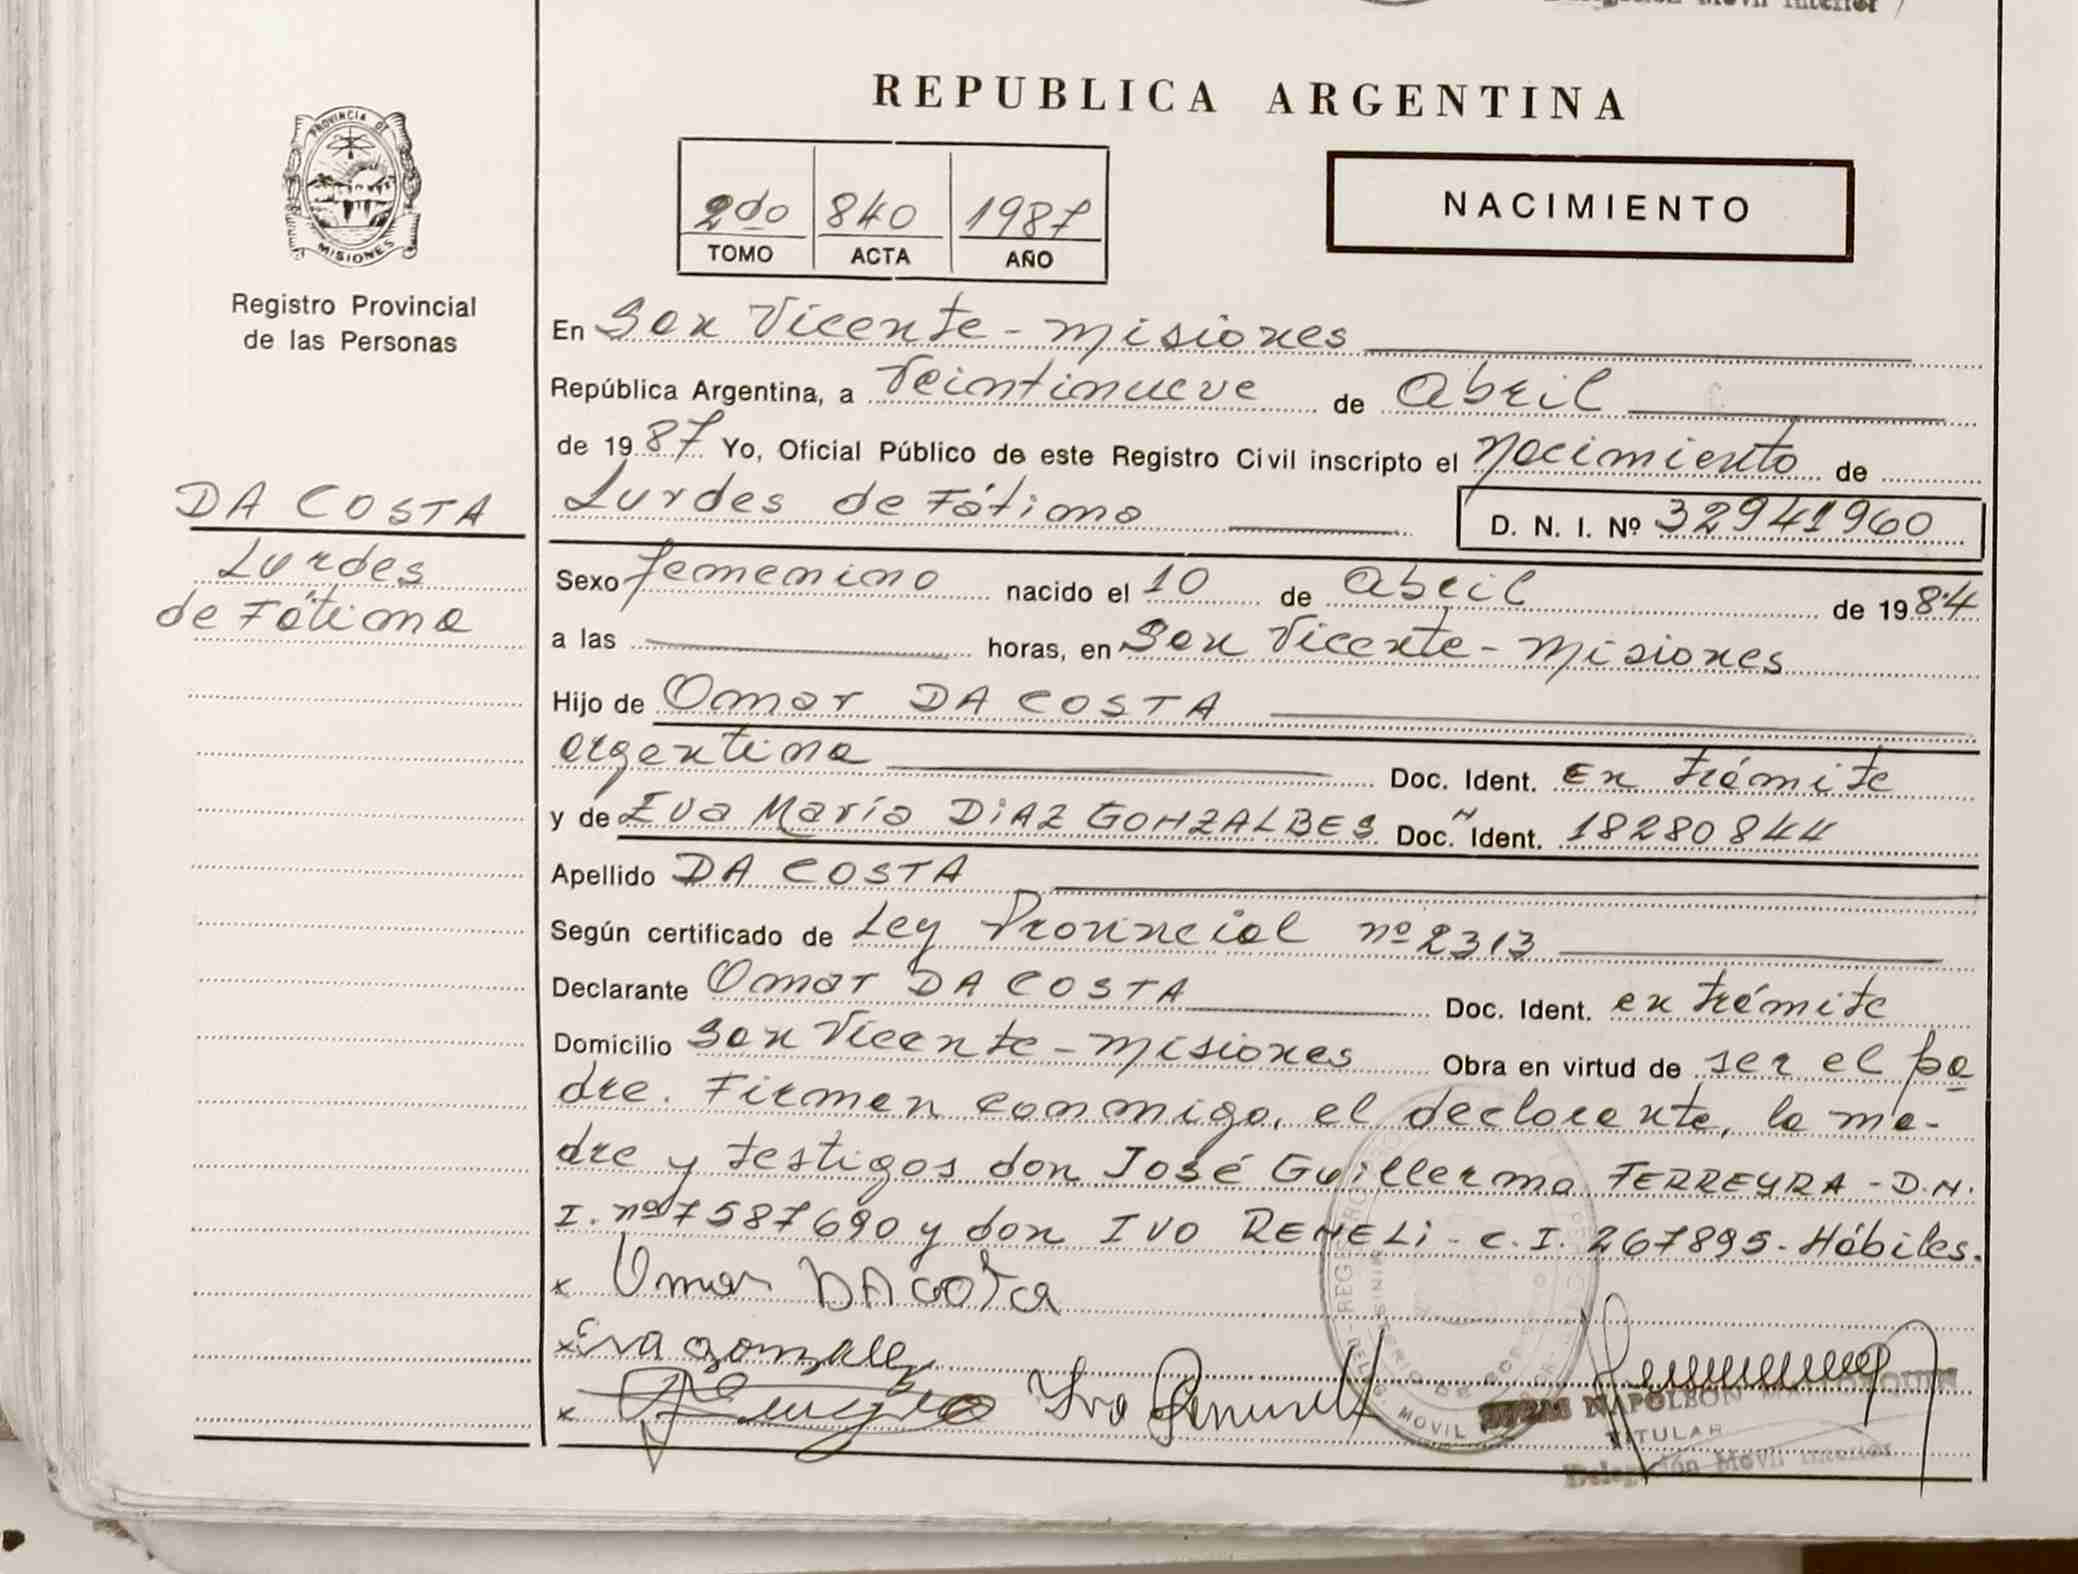 Delegación Movil Interior
REPUBLICA ARGENTINA
PROVINCIA DE
MISIONES
Registro Provincial
de las Personas
2do 840 1987
TOMO ACTA AÑO
NACIMIENTO
En San Vicente - Misiones
República Argentina, a Veintinueve de abril
de 1987 Yo, Oficial Público de este Registro Civil inscripto el nacimiento de
DA COSTA
Lurdes
de Fátima
Lurdes de Fátima D. N. I. Nº 32941960
Sexo femenino nacido el 10 de abril de 1984
a las horas, en San Vicente - Misiones
Hijo de Omar DA COSTA
argentina Doc. Ident. en trámite
y de Eva María DiAZ GONZALBES Doc. Ident. 18280844
Apellido DA COSTA
Según certificado de Ley Provincial nº 2313
Declarante Omar DA COSTA Doc. Ident. en trámite
Domicilio San Vicente - Misiones Obra en virtud de ser el pa
dre. Firman conmmigo, el declarante, la ma-
dre y testigos don José Guillermo FERREYRA - D.N.
I. nº 7587690 y don IVO RENELi - C.I. 267895 - Hábiles.
x Omar DA COSTa
x Eva gonzalez
x Ivo
NAPOLEON
TITULAR
Delegación Movil Interior